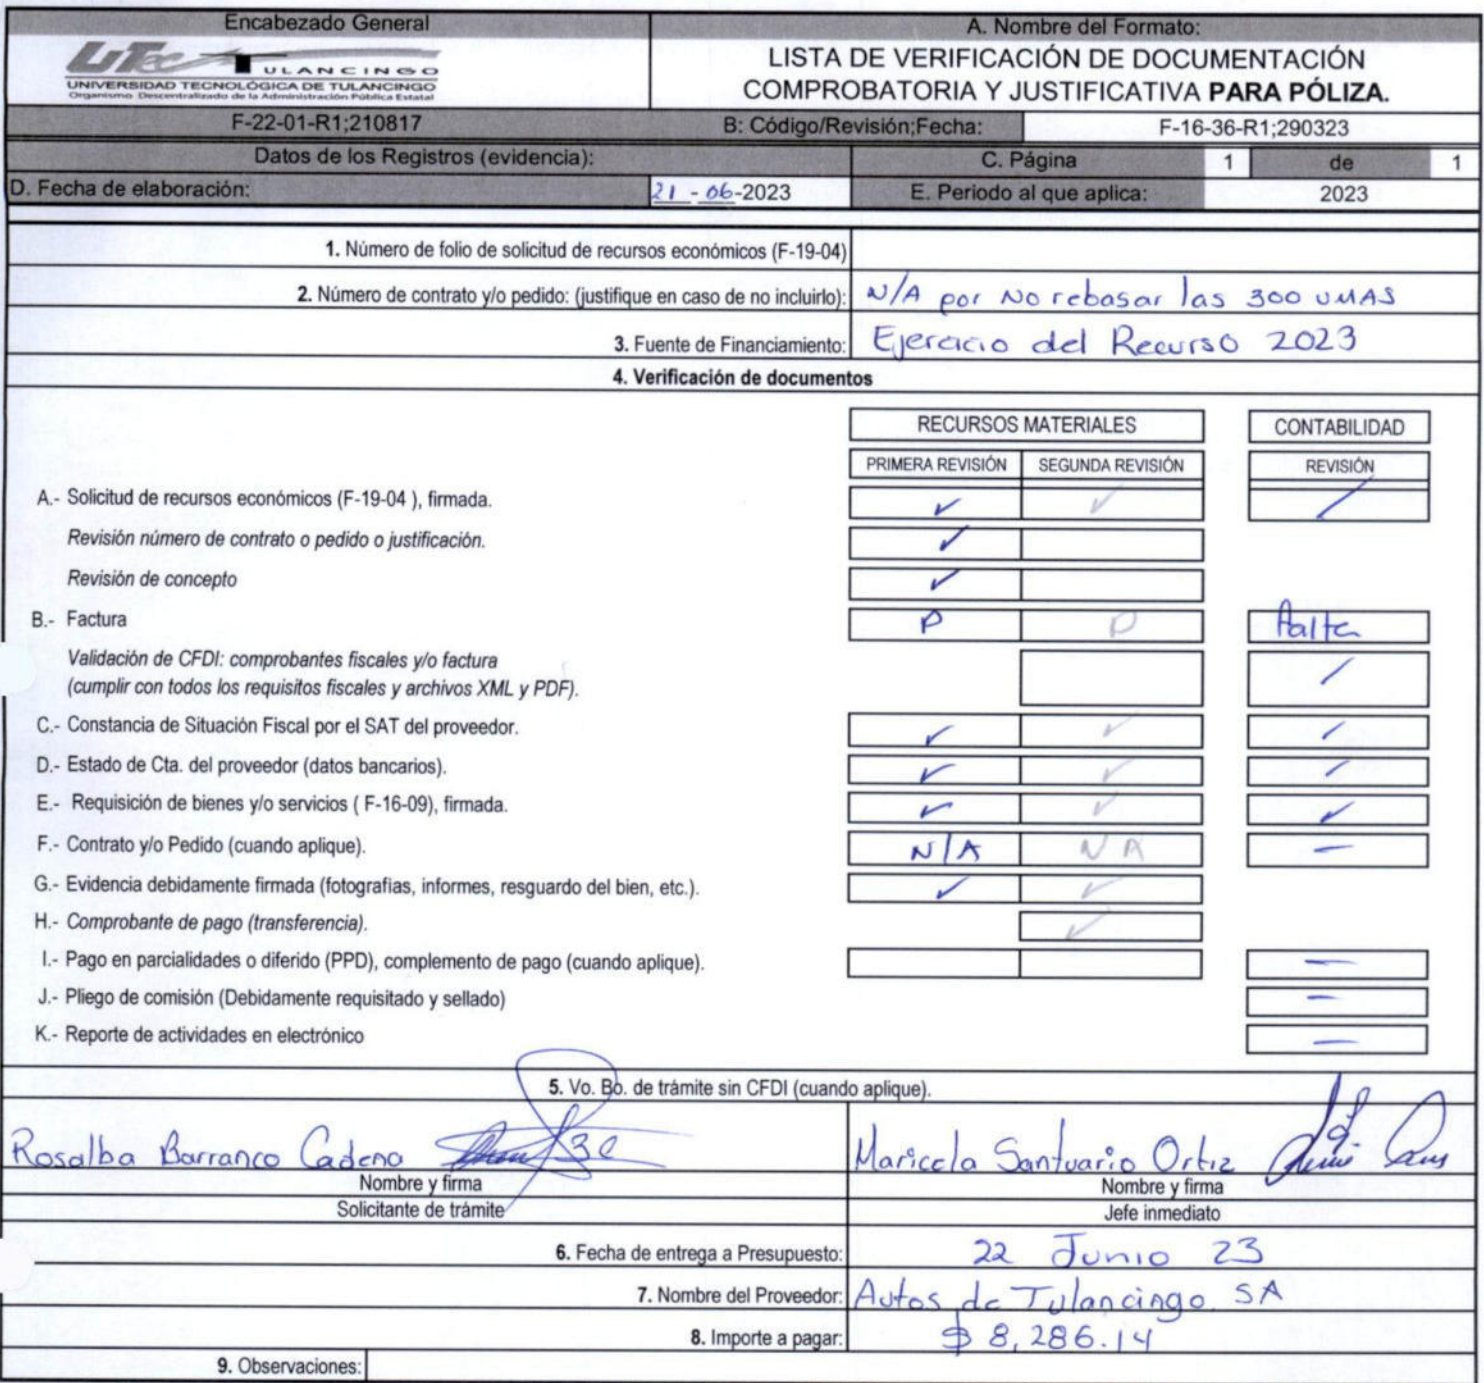 Encabezado General
A. Nombre del Formato:
UTec TULANCINGO
UNIVERSIDAD TECNOLÓGICA DE TULANCINGO
Organismo Descentralizado de la Administración Pública Estatal
LISTA DE VERIFICACIÓN DE DOCUMENTACIÓN
COMPROBATORIA Y JUSTIFICATIVA PARA PÓLIZA.
F-22-01-R1;210817
B: Código/Revisión;Fecha:
F-16-36-R1;290323
Datos de los Registros (evidencia):
C. Página 1 de 1
D. Fecha de elaboración: 21-06-2023
E. Periodo al que aplica: 2023
1. Número de folio de solicitud de recursos económicos (F-19-04)
2. Número de contrato y/o pedido: (justifique en caso de no incluirlo): N/A por No rebasar las 300 UMAS
3. Fuente de Financiamiento: Ejercicio del Recurso 2023
4. Verificación de documentos
RECURSOS MATERIALES CONTABILIDAD
PRIMERA REVISIÓN SEGUNDA REVISIÓN REVISIÓN
A.- Solicitud de recursos económicos (F-19-04 ), firmada. ✓ ✓ /
Revisión número de contrato o pedido o justificación. ✓
Revisión de concepto ✓
B.- Factura P P Falta
Validación de CFDI: comprobantes fiscales y/o factura
(cumplir con todos los requisitos fiscales y archivos XML y PDF). /
C.- Constancia de Situación Fiscal por el SAT del proveedor. ✓ ✓ ✓
D.- Estado de Cta. del proveedor (datos bancarios). ✓ ✓ ✓
E.- Requisición de bienes y/o servicios ( F-16-09), firmada. ✓ ✓ ✓
F.- Contrato y/o Pedido (cuando aplique). N/A N A —
G.- Evidencia debidamente firmada (fotografías, informes, resguardo del bien, etc.). ✓ ✓
H.- Comprobante de pago (transferencia). ✓
I.- Pago en parcialidades o diferido (PPD), complemento de pago (cuando aplique). —
J.- Pliego de comisión (Debidamente requisitado y sellado) —
K.- Reporte de actividades en electrónico —
5. Vo. Bo. de trámite sin CFDI (cuando aplique).
Rosalba Barranco Cadena
Nombre y firma
Solicitante de trámite
Maricela Santuario Ortiz
Nombre y firma
Jefe inmediato
6. Fecha de entrega a Presupuesto: 22 Junio 23
7. Nombre del Proveedor: Autos de Tulancingo. SA
8. Importe a pagar: $ 8,286.14
9. Observaciones: